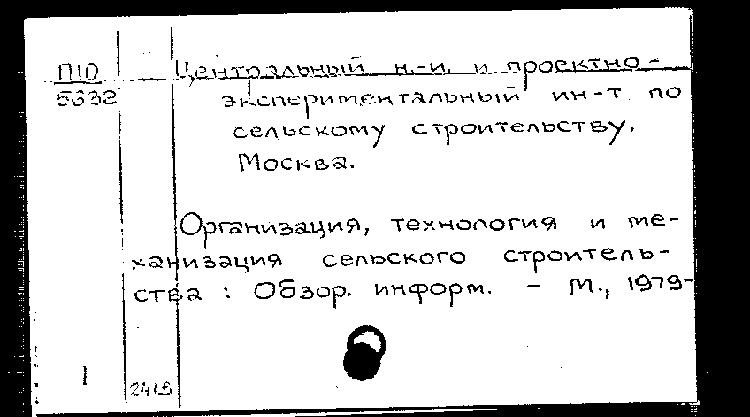 П10
5632
Центральный н.-и. и проектно-
экспериментальный ин-т по
сельскому строительству.
Москва.
Организация, технология и ме-
ханизация сельского строитель-
ства : Обзор. информ. - М., 1979-
1